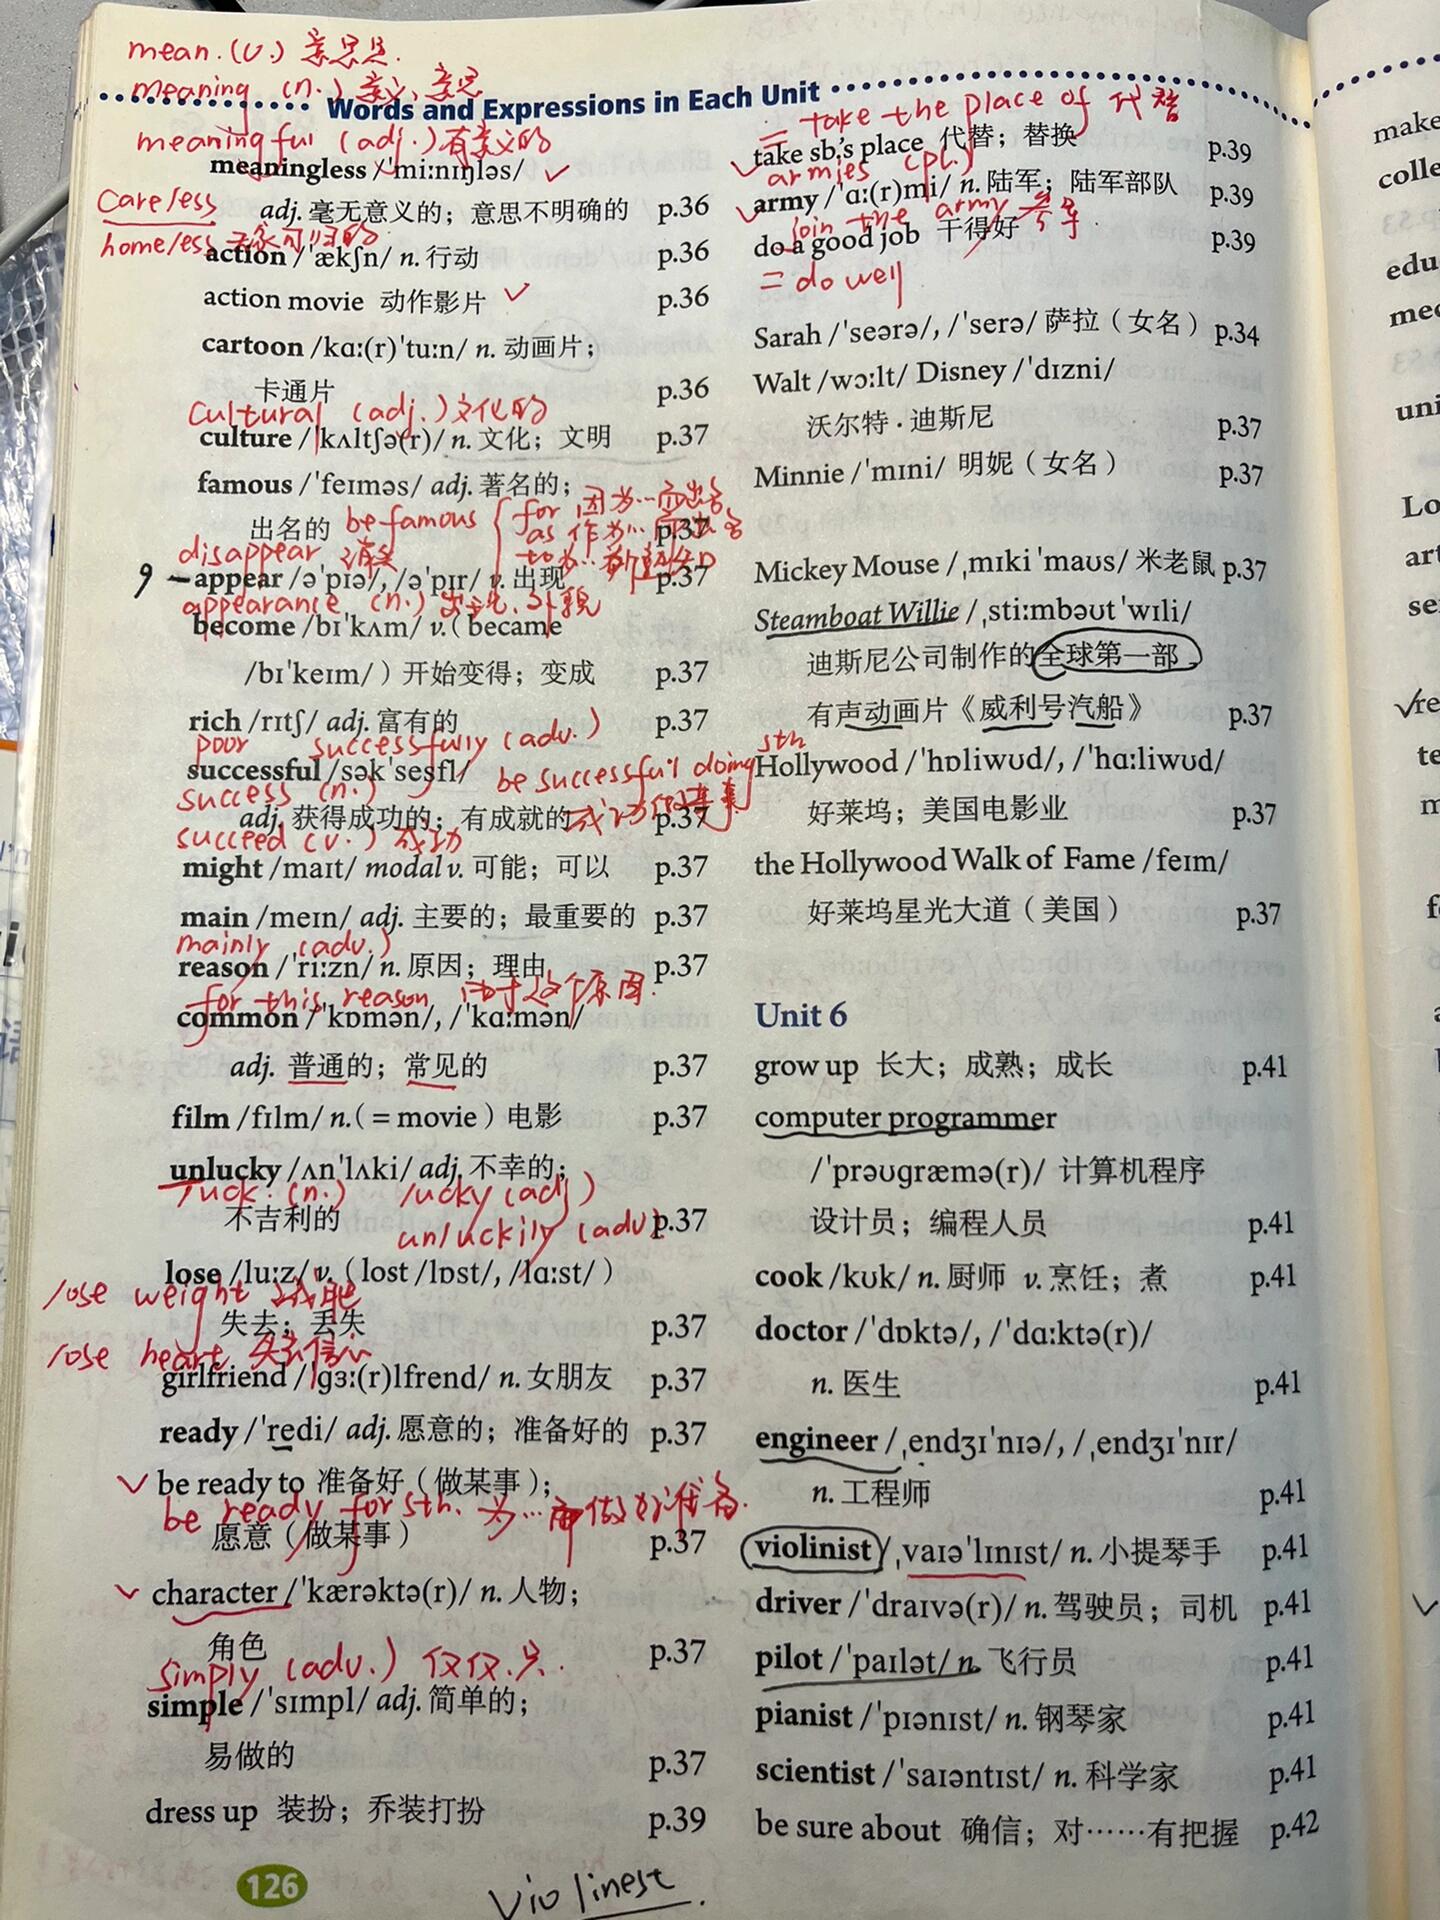 mean.(v.) 意思是.
meaning (n.) 意义、意思
Words and Expressions in Each Unit
meaningful (adj.) 有意义的
meaningless /ˈmiːnɪŋləs/
careless
adj. 毫无意义的；意思不明确的 p.36
homeless 无家可归的
action /ˈækʃn/ n. 行动 p.36
action movie 动作影片 p.36
cartoon /kɑː(r)ˈtuːn/ n. 动画片；
卡通片 p.36
cultural (adj.) 文化的
culture /ˈkʌltʃə(r)/ n. 文化；文明 p.37
famous /ˈfeɪməs/ adj. 著名的；
出名的 p.37
be famous
for 因为…而出名
as 作为…而出名
to 为…所
disappear 消失
9 appear /əˈpɪə/, /əˈpɪr/ v. 出现 p.37
appearance (n.) 出现、外貌
become /bɪˈkʌm/ v. ( became
/bɪˈkeɪm/ ) 开始变得；变成 p.37
rich /rɪtʃ/ adj. 富有的 p.37
poor successfully (adv.)
successful /səkˈsesfl/
be successful doing sth
success (n.)
adj. 获得成功的；有成就的 p.37
成功做某事
succeed (v.) 成功
might /maɪt/ modal v. 可能；可以 p.37
main /meɪn/ adj. 主要的；最重要的 p.37
mainly (adv.)
reason /ˈriːzn/ n. 原因；理由 p.37
for this reason 由于这个原因.
common /ˈkɒmən/, /ˈkɑːmən/
adj. 普通的；常见的 p.37
film /fɪlm/ n. ( = movie ) 电影 p.37
unlucky /ʌnˈlʌki/ adj. 不幸的；
luck. (n.) lucky (adj)
不吉利的 p.37
unluckily (adv)
lose /luːz/ v. ( lost /lɒst/, /lɑːst/ )
lose weight 减肥
失去；丢失 p.37
lose heart 失去信心
girlfriend /ˈɡɜː(r)lfrend/ n. 女朋友 p.37
ready /ˈredi/ adj. 愿意的；准备好的 p.37
be ready to 准备好（做某事）；
be ready for sth. 为…而做好准备.
愿意（做某事） p.37
character /ˈkærəktə(r)/ n. 人物；
角色 p.37
simply (adv.) 仅仅.只.
simple /ˈsɪmpl/ adj. 简单的；
易做的 p.37
dress up 装扮；乔装打扮 p.39
126
violinest.
= take the place of 代替
take sb.'s place 代替；替换 p.39
armies (pl.)
army /ˈɑː(r)mi/ n. 陆军；陆军部队 p.39
join the army 参军
do a good job 干得好 p.39
= do well
Sarah /ˈseərə/, /ˈserə/ 萨拉（女名） p.34
Walt /wɔːlt/ Disney /ˈdɪzni/
沃尔特 · 迪斯尼 p.37
Minnie /ˈmɪni/ 明妮（女名） p.37
Mickey Mouse /ˌmɪki ˈmaʊs/ 米老鼠 p.37
Steamboat Willie /ˌstiːmbəʊt ˈwɪli/
迪斯尼公司制作的全球第一部
有声动画片《威利号汽船》 p.37
Hollywood /ˈhɒliwʊd/, /ˈhɑːliwʊd/
好莱坞；美国电影业 p.37
the Hollywood Walk of Fame /feɪm/
好莱坞星光大道（美国） p.37
Unit 6
grow up 长大；成熟；成长 p.41
computer programmer
/ˈprəʊɡræmə(r)/ 计算机程序
设计员；编程人员 p.41
cook /kʊk/ n. 厨师 v. 烹饪；煮 p.41
doctor /ˈdɒktə/, /ˈdɑːktə(r)/
n. 医生 p.41
engineer /ˌendʒɪˈnɪə/, /ˌendʒɪˈnɪr/
n. 工程师 p.41
violinist /ˌvaɪəˈlɪnɪst/ n. 小提琴手 p.41
driver /ˈdraɪvə(r)/ n. 驾驶员；司机 p.41
pilot /ˈpaɪlət/ n. 飞行员 p.41
pianist /ˈpɪənɪst/ n. 钢琴家 p.41
scientist /ˈsaɪəntɪst/ n. 科学家 p.41
be sure about 确信；对……有把握 p.42
make
colle
edu
med
uni
Lo
art
se